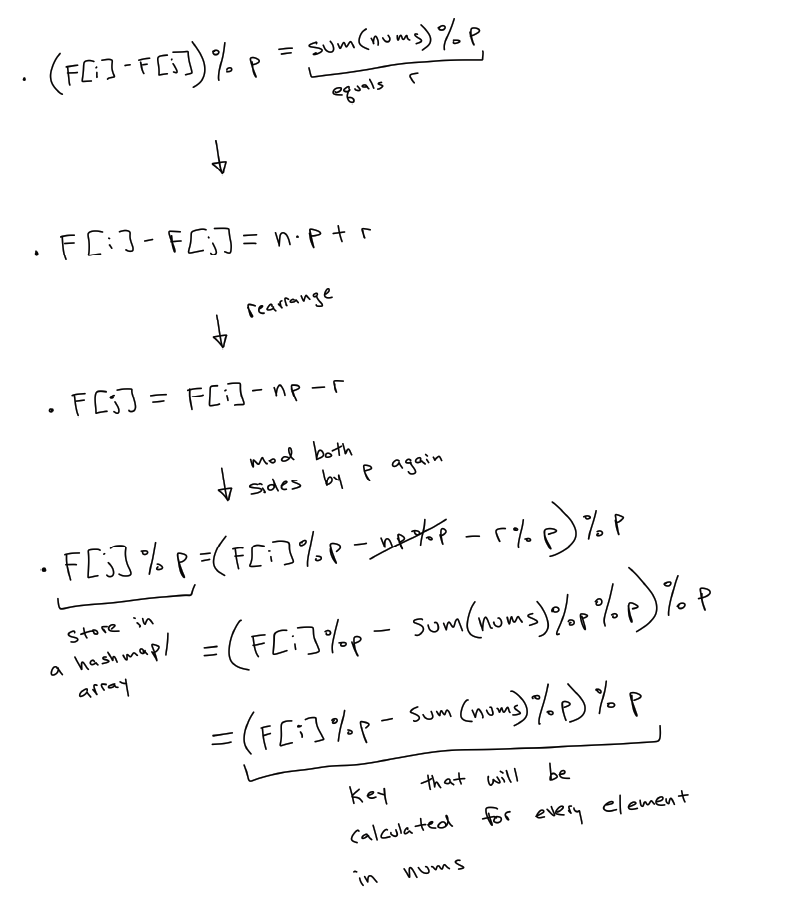 . (F[i] - F[j]) % p = sum(nums) % p
equals r
↓
. F[i] - F[j] = n·p + r
↓ rearrange
. F[j] = F[i] - np - r
↓ mod both
sides by p again
. F[j] % p = (F[i] % p - np%p - r % p) % p
store in
a hashmap/
array
= (F[i] % p - sum(nums) % p % p) % p
= (F[i] % p - sum(nums) % p) % p
key that will be
calculated for every element
in nums